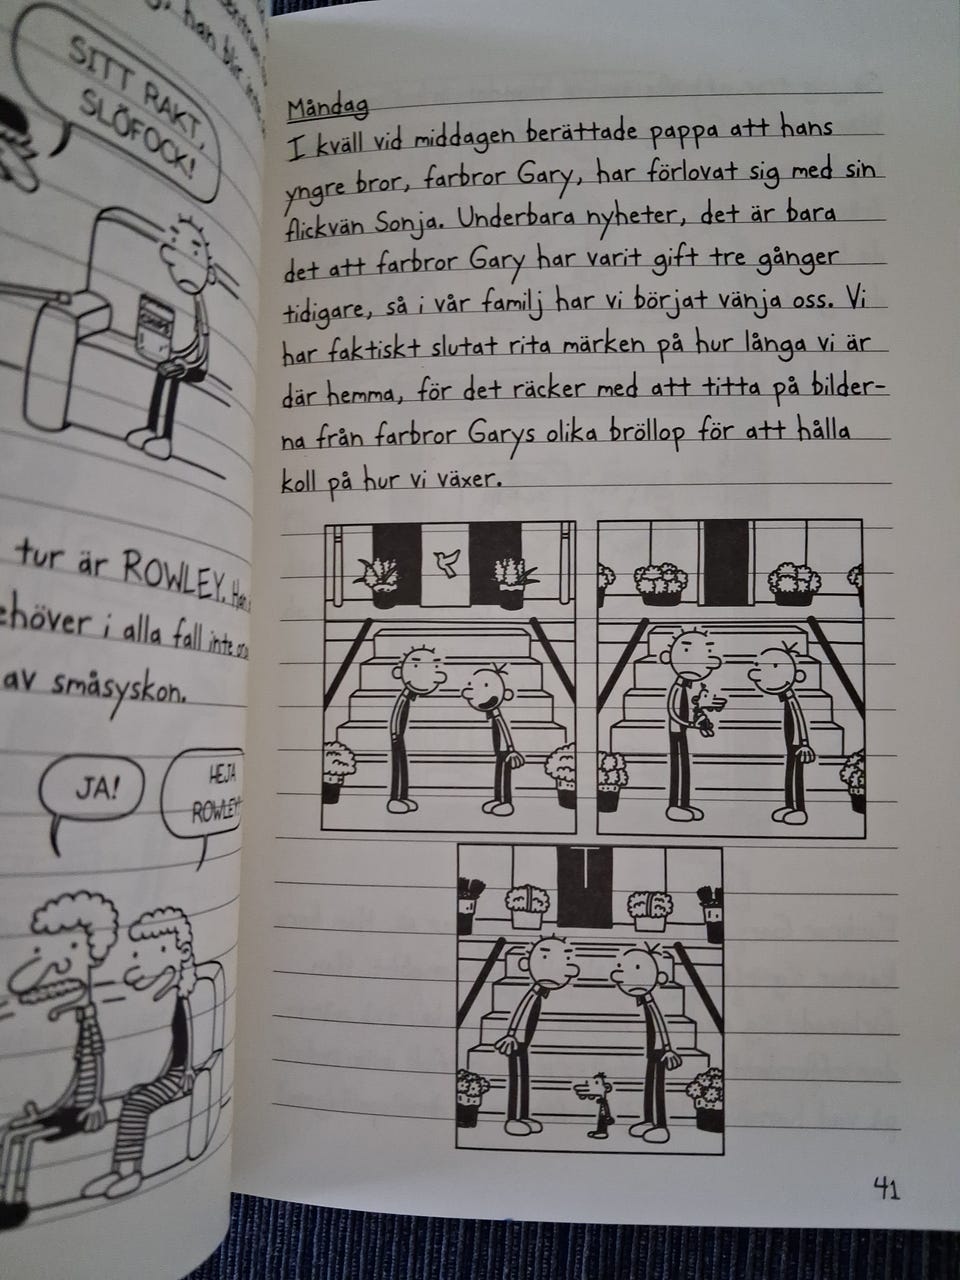 han blir
SITT RAKT,
SLÖFOCK!
CHIPS
tur är ROWLEY.
i alla fall inte
av småsyskon.
JA!
HEJA
ROWLEY
Måndag
I kväll vid middagen berättade pappa att hans
yngre bror, farbror Gary, har förlovat sig med sin
flickvän Sonja. Underbara nyheter, det är bara
det att farbror Gary har varit gift tre gånger
tidigare, så i vår familj har vi börjat vänja oss. Vi
har faktiskt slutat rita märken på hur långa vi är
där hemma, för det räcker med att titta på bilder-
na från farbror Garys olika bröllop för att hålla
koll på hur vi växer.
41